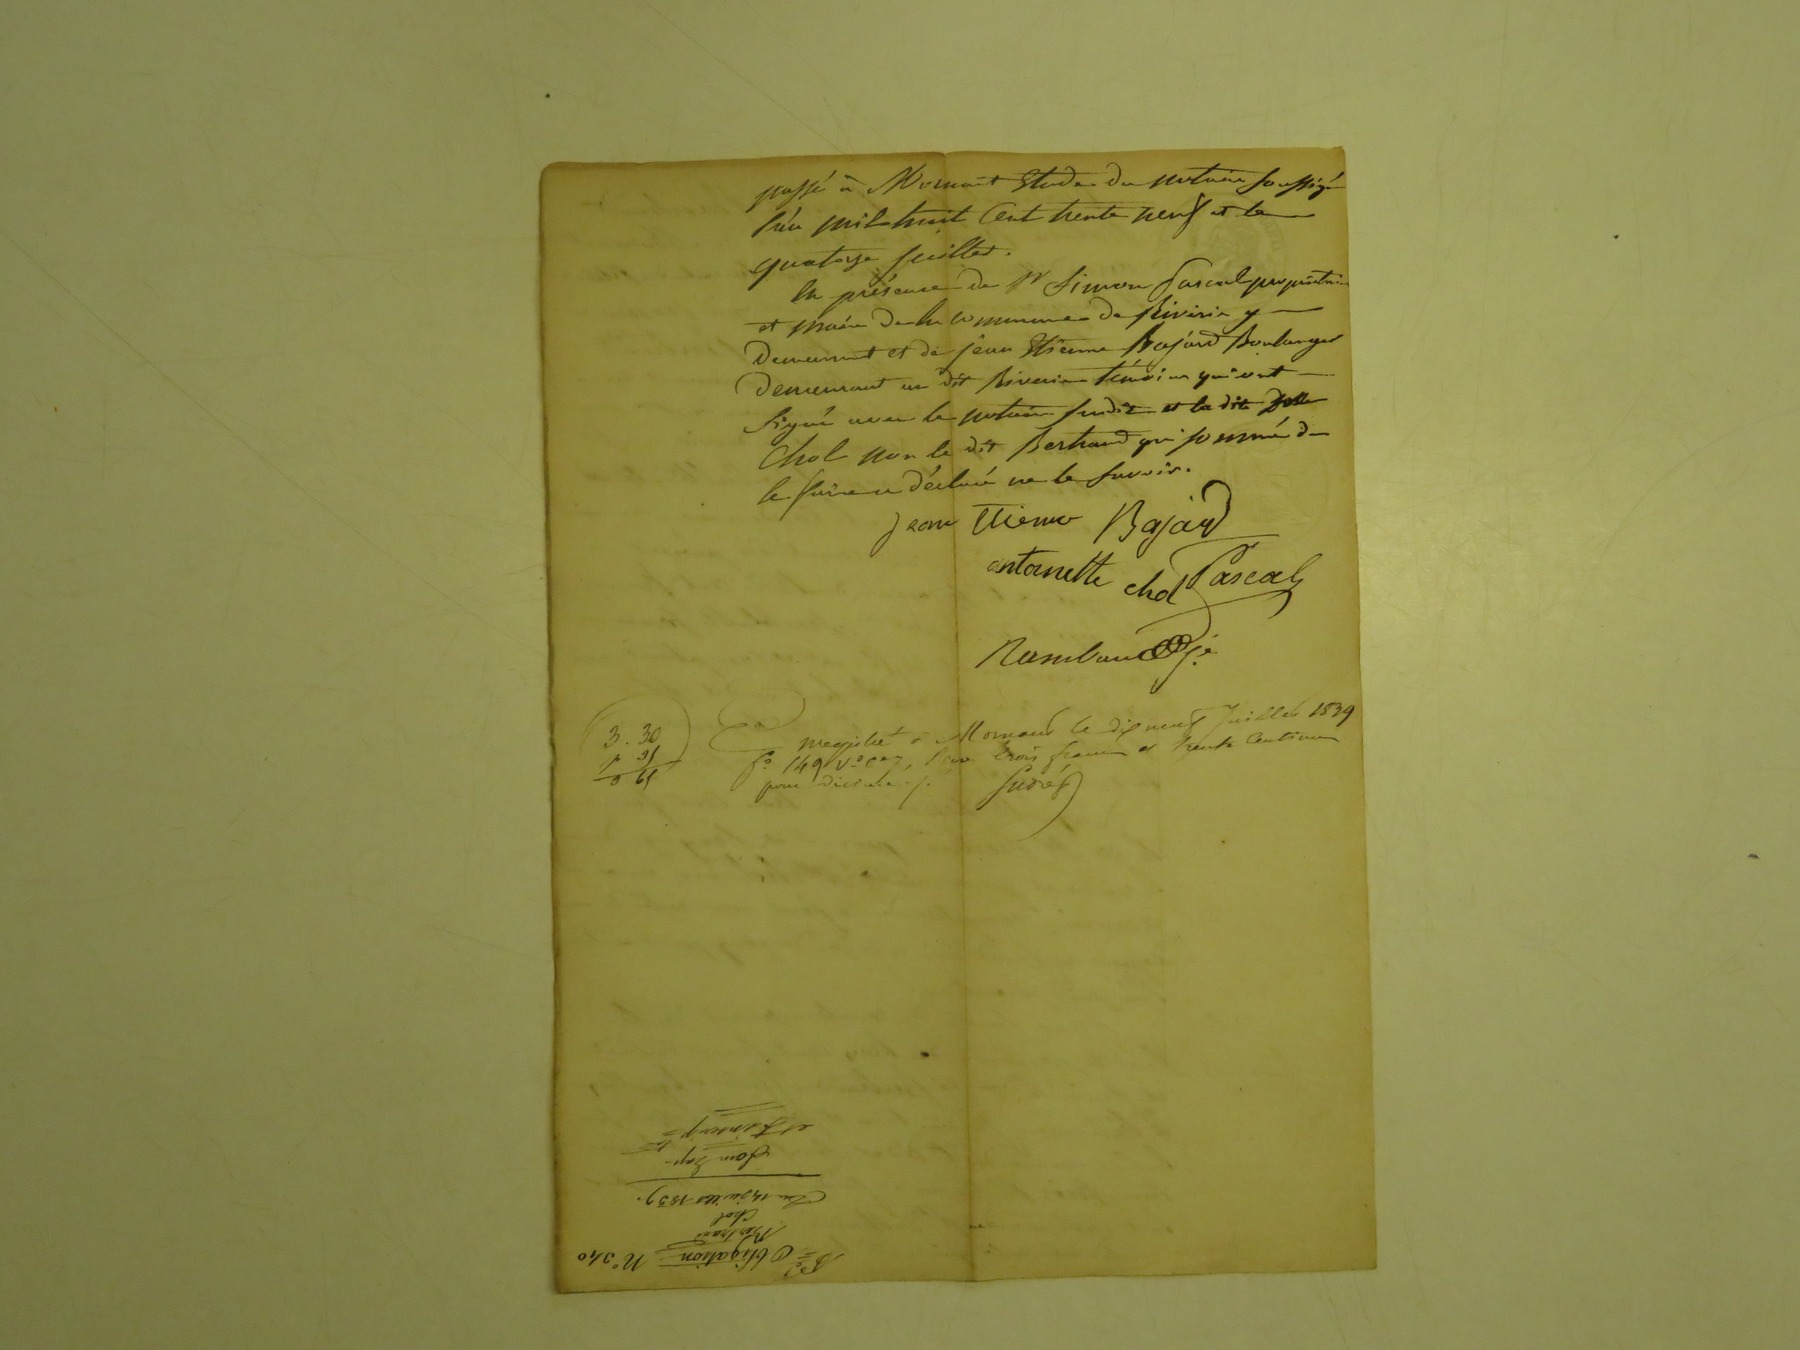 passé à Mornant Etude du notaire soussigné
l'an mil huit Cent trente neuf et le
quatorze juillet.
En présence de Sr Simon Pascal propriétaire
et maire de la commune de Riverie y
demeurant et de jean Etienne Bajard Boulanger
demeurant au dit Riverie témoins qui ont
signé avec le notaire susdit et la dite Delle
Chol non le dit Bertrand qui sommé de
le faire a déclaré ne le savoir.
jean Etienne Bajard
antoinette chol Pascal
Rambaud
3.30
Enregistré à Mornant le dix neuf Juillet 1839
fo 149 vo Ce 7, Reçu trois francs et trente Centimes
pour décime
Bd Obligation No 340
Bertrand
Chol
Du 14 juillet 1839.